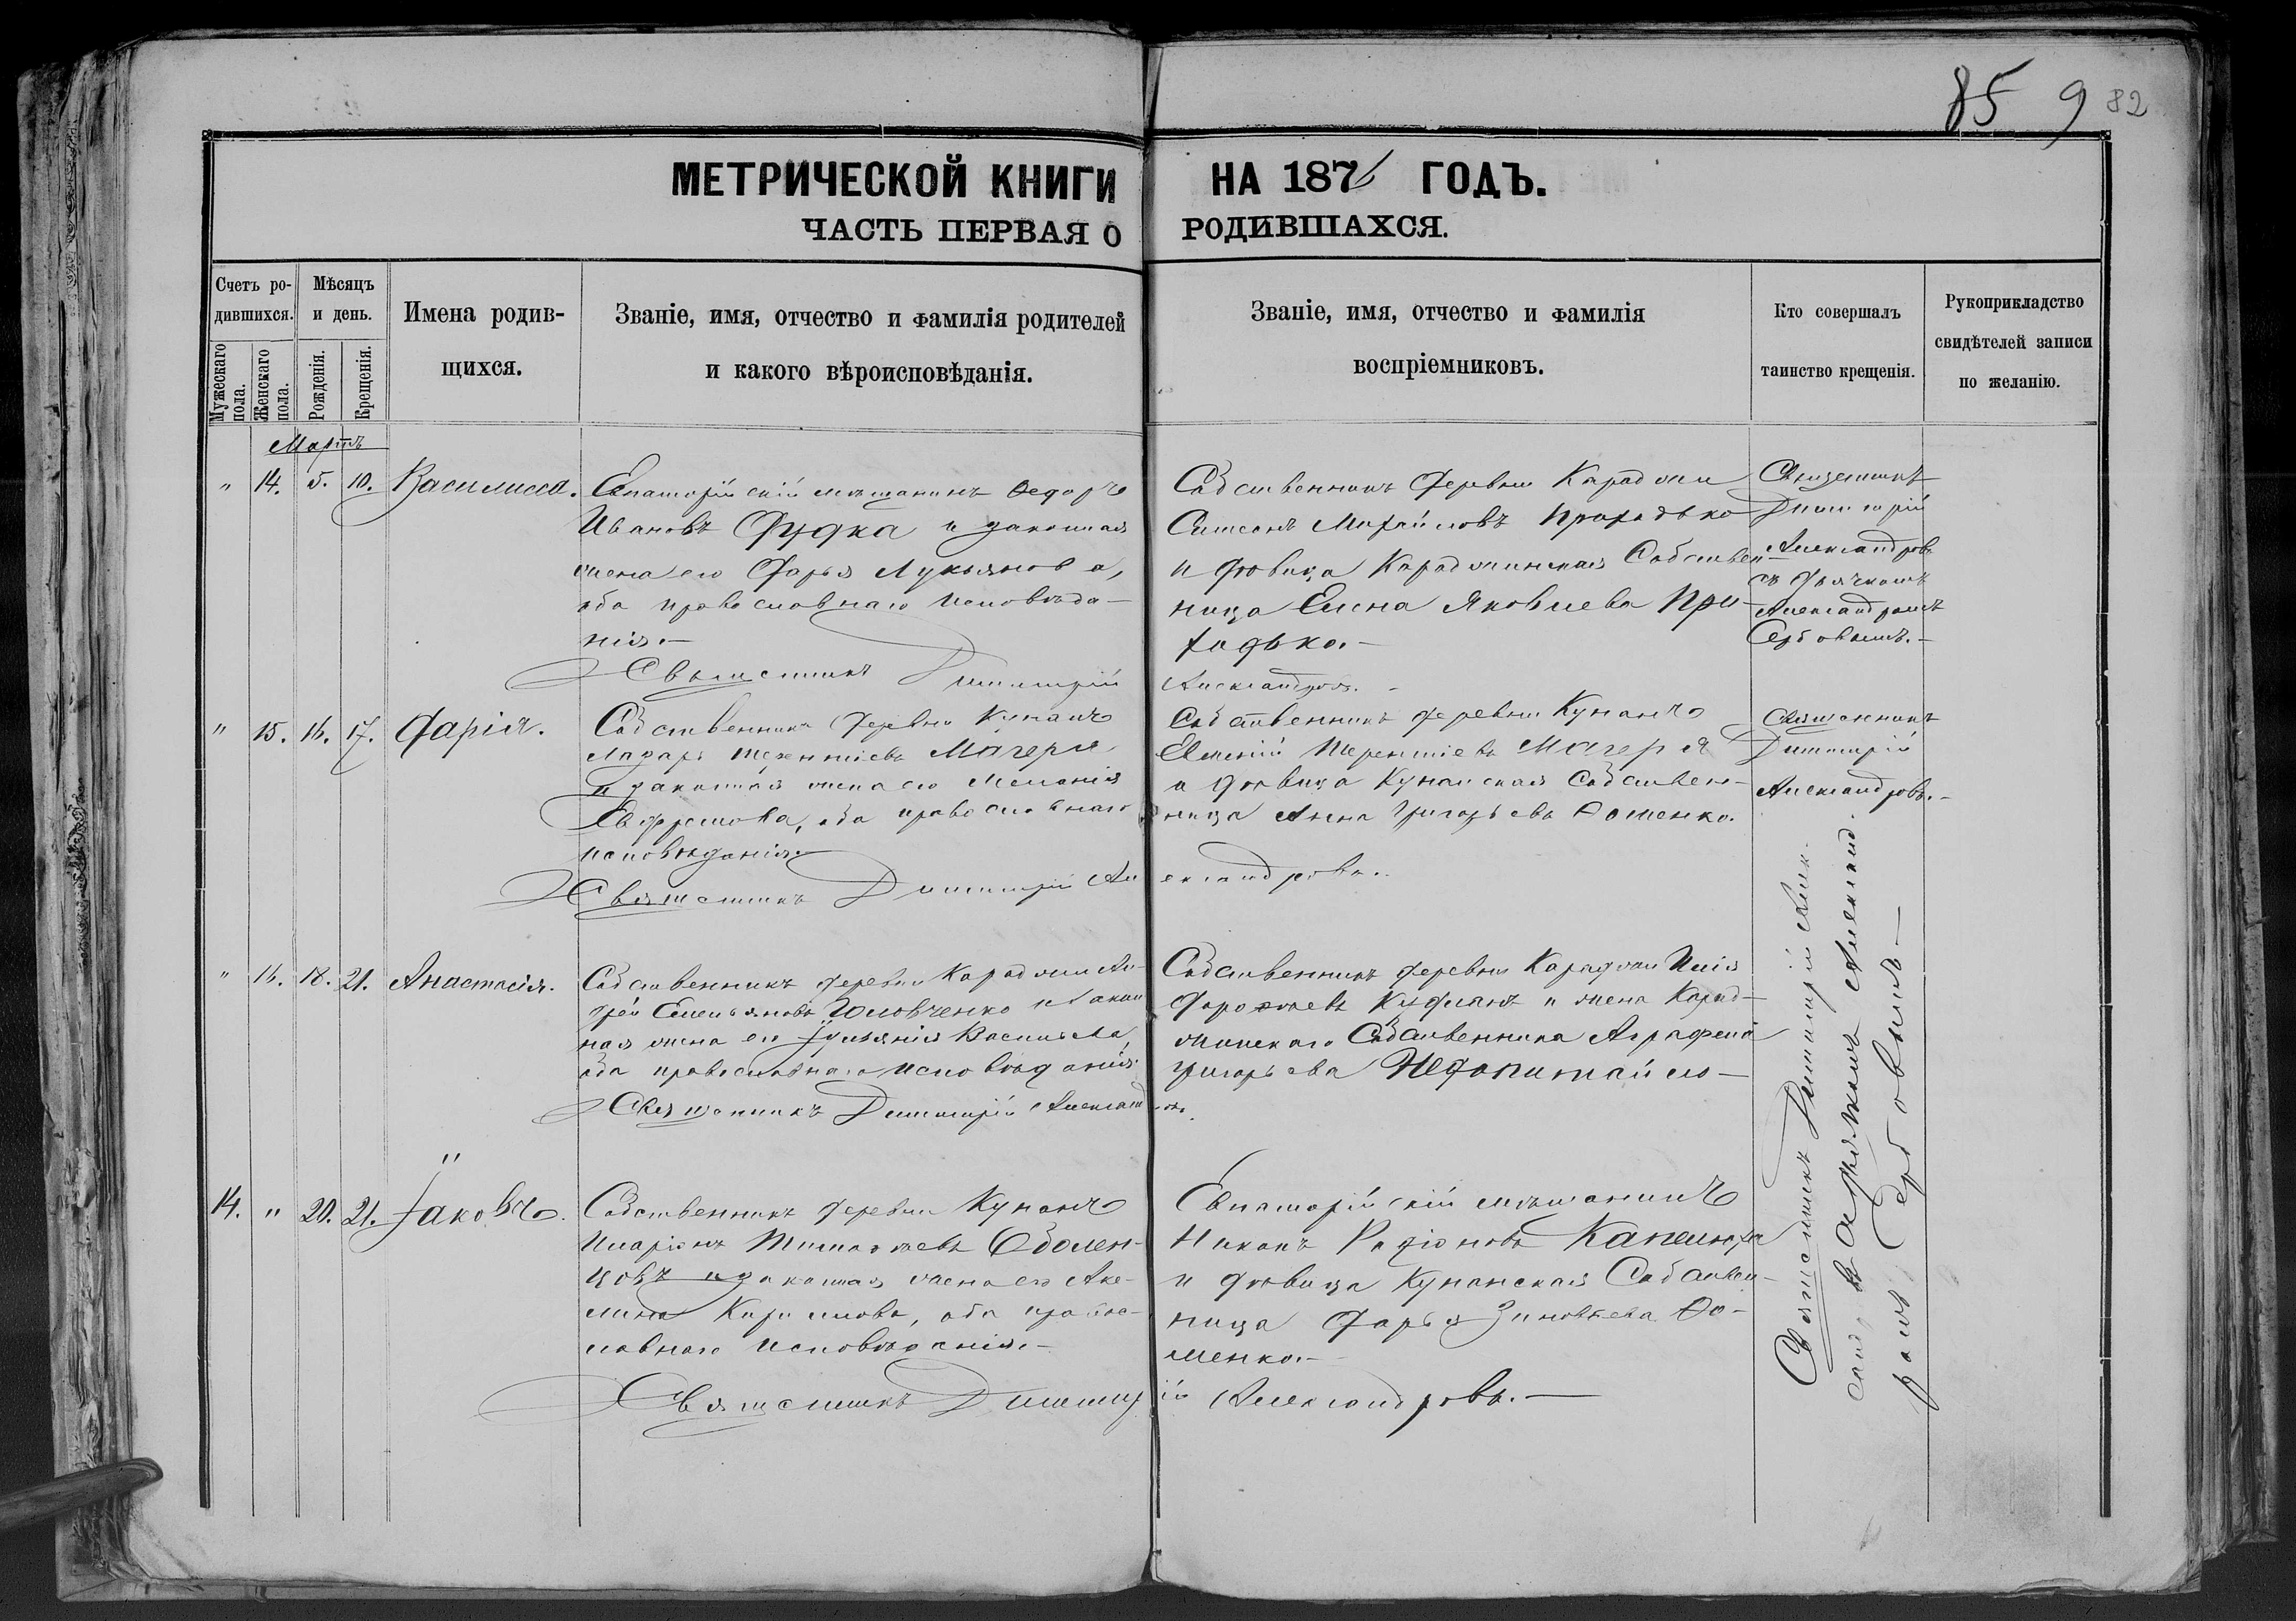 85 9 82
МЕТРИЧЕСКОЙ КНИГИ НА 1876 ГОДЪ.
ЧАСТЬ ПЕРВАЯ О РОДИВШАХСЯ.
Счетъ ро-
дившихся.
Мужескаго пола.
Женскаго пола.
Мѣсяцъ
и день.
Рожденія.
Крещенія.
Имена родив-
шихся.
Званіе, имя, отчество и фамилія родителей
и какого вѣроисповѣданія.
Званіе, имя, отчество и фамилія
воспріемниковъ.
Кто совершалъ
таинство крещенія.
Рукоприкладство
свидѣтелей записи
по желанію.
Мартъ
" 14. 5. 10. Василисса.
Евпаторійскій мѣщанинъ Ѳедоръ
Ивановъ Дудка и законная
жена его Дарья Лукьянова,
оба православнаго исповѣда-
нія.—
Священникъ Димитрій Александровъ.
Собственникъ деревни Караджи
Симеонъ Михайловъ
и дѣвица Караджинская Собствен-
ница Елена Яковлева При-
ходько.—
Священникъ
Димитрій
Александровъ
съ дьячкомъ
Александромъ
Сербовымъ.—
" 15. 16. 17. Дарія.
Собственникъ деревни Кунанъ
Лазарь Терентіевъ Магеря
и законная жена его Меланія
Евфремова, оба православнаго
исповѣданія.
Священникъ Димитрій Александровъ.
Собственникъ деревни Кунанъ
Терентіевъ Магеря
и дѣвица Кунанская Собствен-
ница Анна Григорьева Ѳоменко.
Священникъ
Димитрій
Александровъ.—
" 16. 18. 21. Анастасія.
Собственникъ деревни Караджи Ан-
дрей Емельяновъ Головченко и закон-
ная жена его Іуліанія Васильева,
оба православнаго исповѣданія.
Священникъ Димитрій Александровъ.
Собственникъ деревни Караджи Илія
Дороѳеевъ и жена Карад-
жинскаго Собственника Аграфена
Григорьева Недопитайло—
14. " 20. 21. Іаковъ.
Собственникъ деревни Кунанъ
Иларіонъ Тимоѳеевъ Оболен-
цовъ и законная жена его Аке-
лина Кирилова, оба правос-
лавнаго исповѣданія.—
Священникъ Димитрій Александровъ.—
Евпаторійскій мѣщанинъ
Никонъ Родіоновъ Капелюха
и дѣвица Кунанская Собствен-
ница Дарья Зиновьева Ѳо-
менко.—
Священникъ Димитрій Алек-
санд. съ дьячкомъ Александ-
ромъ Сербовымъ.—